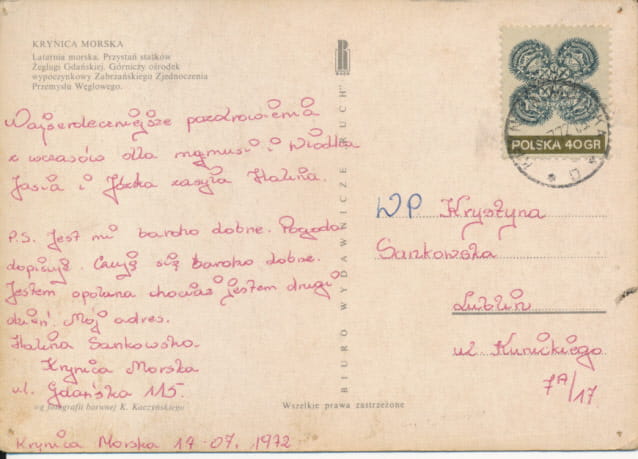 KRYNICA MORSKA
Latarnia morska. Przystań statków
Żeglugi Gdańskiej. Górniczy ośrodek
wypoczynkowy Zabrzańskiego Zjednoczenia
Przemysłu Węglowego.
Najserdeczniejsze pozdrowienia
z wczasów dla mamusi i Wiodka
Jasia i Józka zasyła Halina.
P.S. Jest mi bardzo dobrze. Pogoda
dopisuje. Czuję się bardzo dobrze.
Jestem opalana chociaż jestem drugi
dzień. Mój adres.
Halina Sankowska.
Krynica Morska
ul. Gdańska 115.
wg fotografii barwnej K. Kaczyńskiego
Krynica Morska 14.07.1972
BIURO WYDAWNICZE "RUCH"
Wszelkie prawa zastrzeżone
RUCH
POLSKA 40 GR
WP Krystyna
Sankowska
Lublin
ul Kunickiego
7A/17